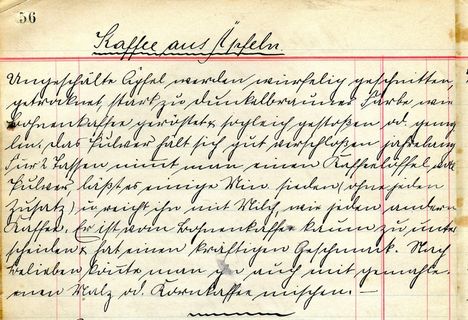 56
Kaffee aus Äpfeln
Ungeschälte Äpfel werden würfelig geschnitten,
getrocknet, stark zu dunkelbrauner Farbe wie
Bohnenkaffee geröstet & sogleich gestoßen od. gemah
len. Das Pulver hält sich gut verschloßen jahrelang
Für 2 Tassen nimt man einen Kaffeelöffel voll
Pulver läßt es einige Min sieden (ohne jeden
Zusatz) u reicht ihn mit Milch wie jeden andern
Kaffee. Er ist vom Bohnenkaffee kaum zu unter
scheiden & hat einen kräftigen Geschmack. Nach
Belieben könte man ihn auch mit gemahle
enen Malz od. Kornkaffee mischen. —